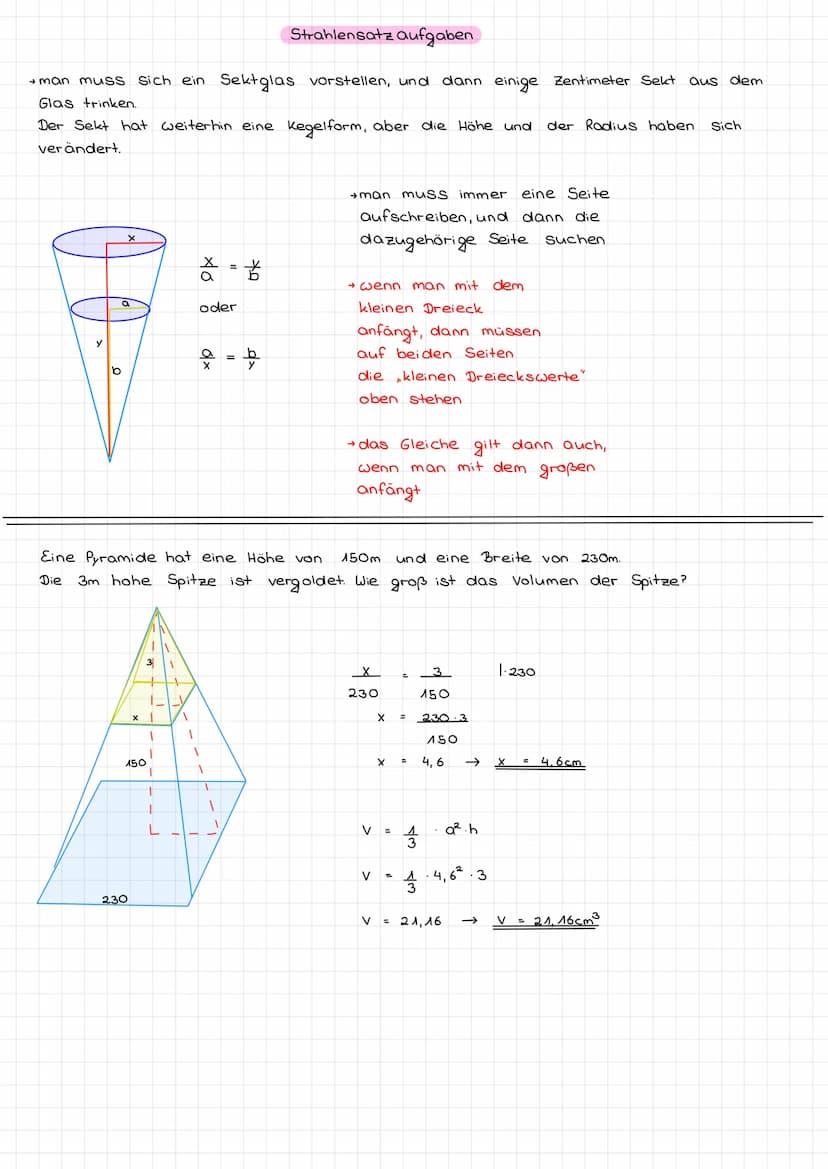 Strahlensatzaufgaben
→man muss sich ein Sektglas vorstellen, und dann einige Zentimeter Sekt aus dem
Glas trinken.
Der Sekt hat weiterhin eine Kegelform, aber die Höhe und der Radius haben sich
verändert.
x
a
y
b
x/a = y/b
oder
a/x = b/y
→man muss immer eine Seite
aufschreiben, und dann die
dazugehörige Seite suchen
→wenn man mit dem
kleinen Dreieck
anfängt, dann müssen
auf beiden Seiten
die „kleinen Dreieckswerte"
oben stehen
→das Gleiche gilt dann auch,
wenn man mit dem großen
anfängt
Eine Pyramide hat eine Höhe von 150m und eine Breite von 230m.
Die 3m hohe Spitze ist vergoldet. Wie groß ist das Volumen der Spitze?
3
x
150
230
x/230 = 3/150 |·230
x = 230·3/150
x = 4,6 → x = 4,6cm
V = 1/3 · a²·h
V = 1/3 · 4,6² · 3
V = 21,16 → V = 21,16cm³